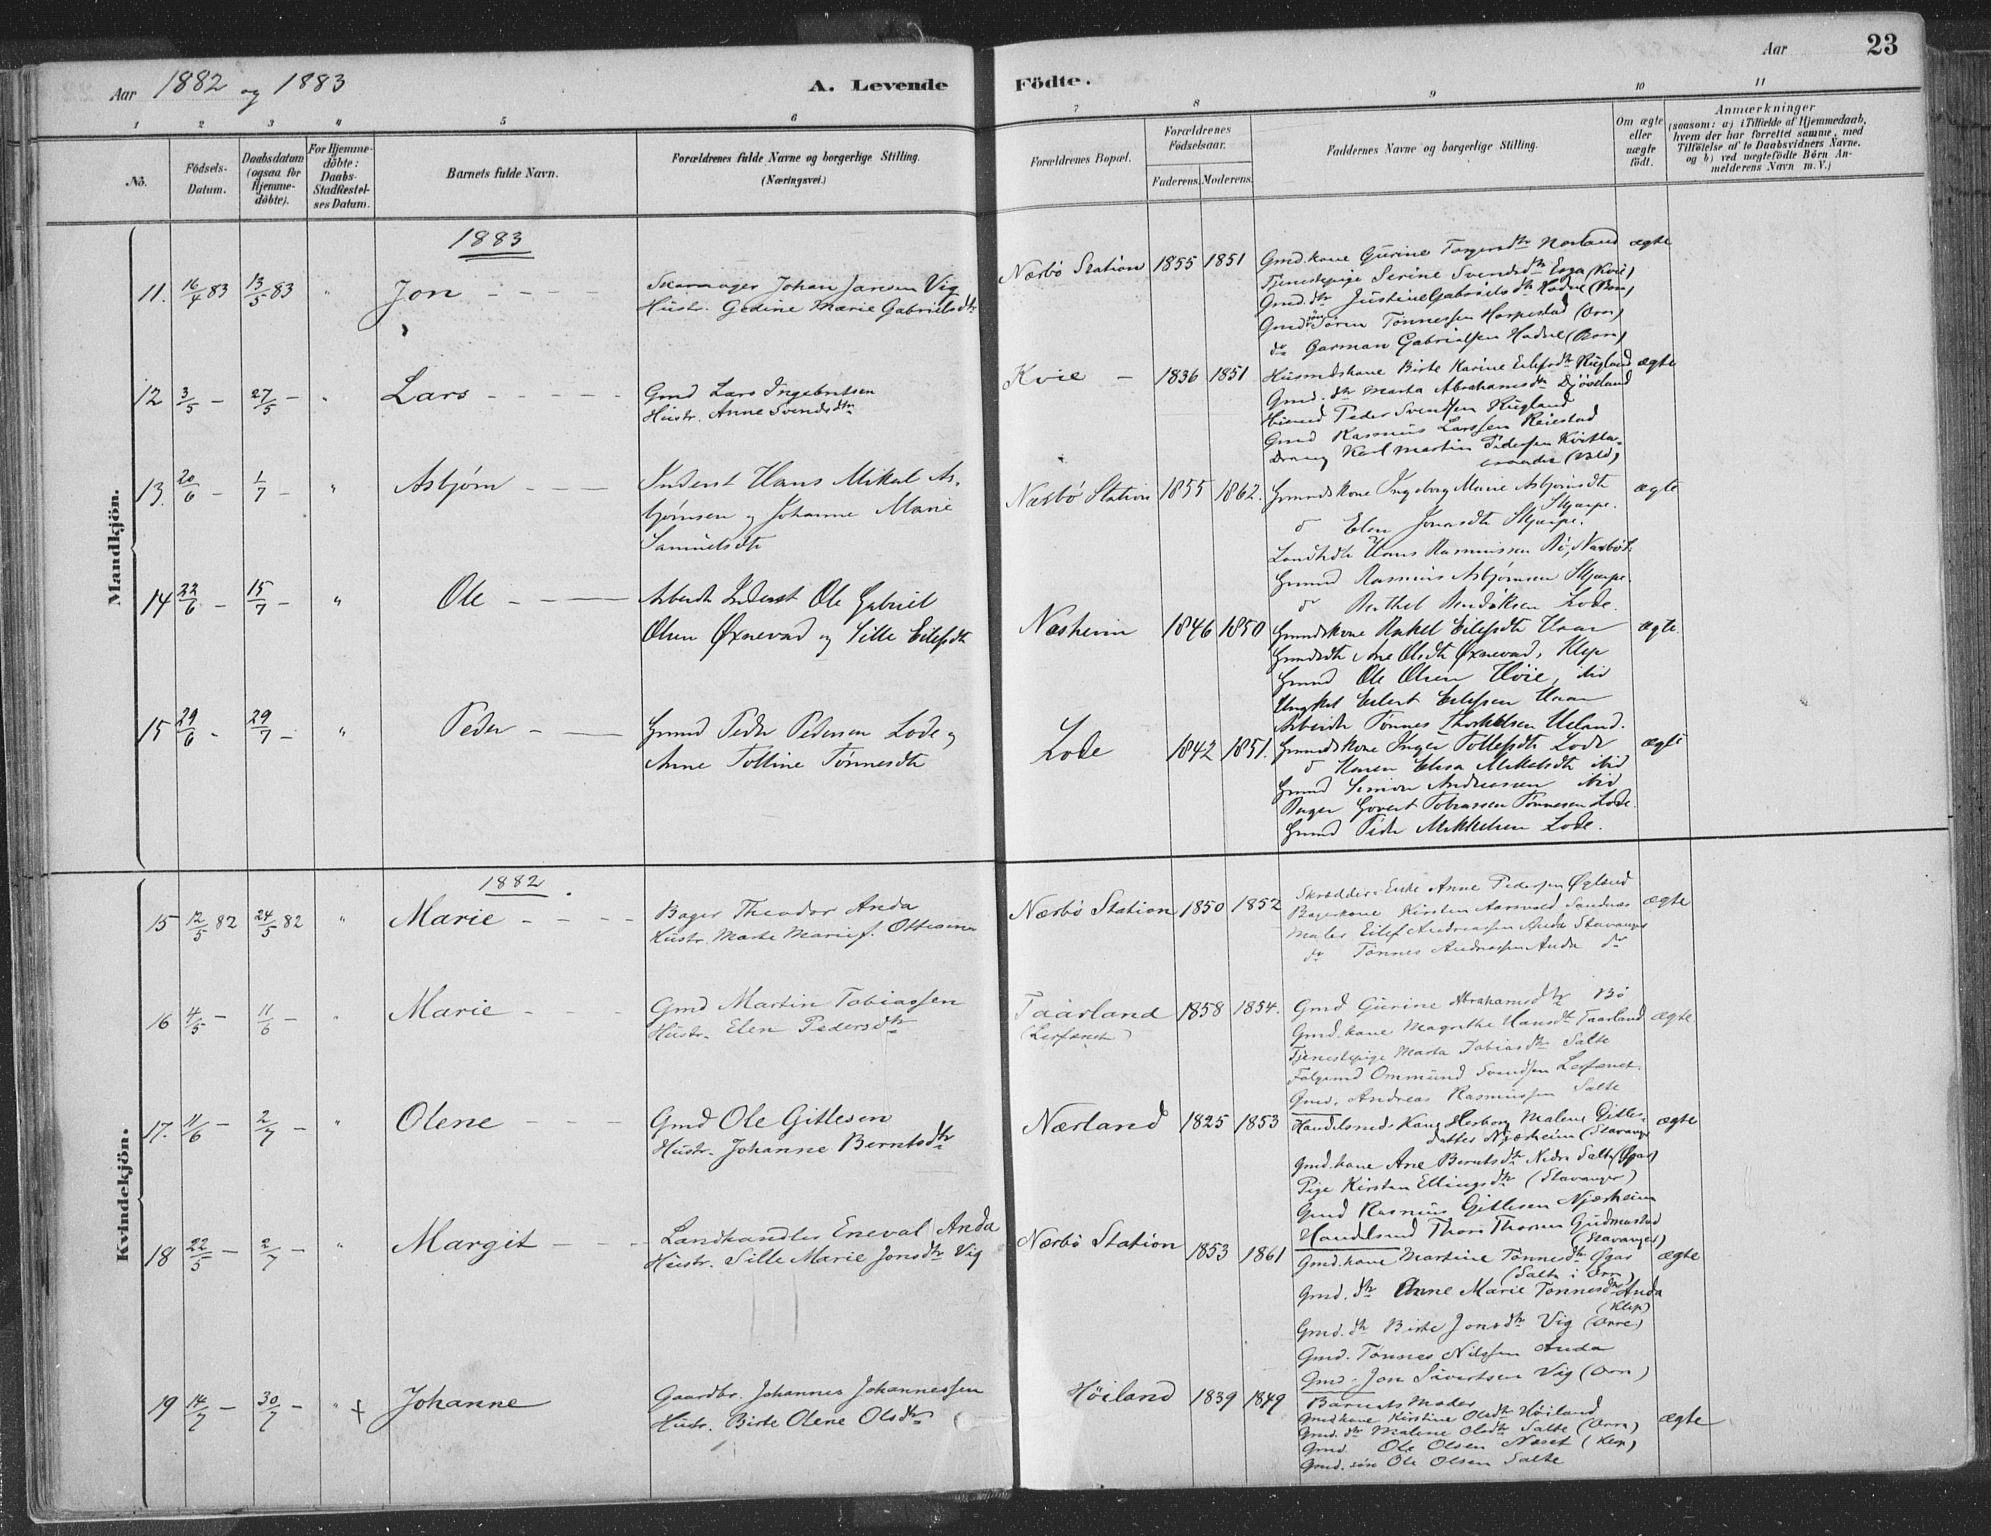 Aar 1882 og 1883
A. Levende Födte.
Aar
23
1 2 3 4 5 6 7 8 9 10 11
No.
Födsels-
Datum.
Daabsdatum
(ogsaa for
Hjemme-
döbte).
For Hjemme-
döbte:
Daabs-
Stadfæstel-
ses Datum.
Barnets fulde Navn.
Forældrenes fulde Navne og borgerlige Stilling.
(Næringsvei.)
Forældrenes Bopæl.
Forældrenes
Födselsaar.
Faderens. Moderens.
Faddernes Navne og borgerlige Stilling.
Om ægte
eller
uægte
födt.
Anmærkninger
(saasom: a) i Tilfælde af Hjemmedaab,
hvem der har forrettet samme, med
Tilföielse af to Daabsvidners Navne.
og b) ved uægtefödte Börn An-
melderens Navn m. V.)
Mandkjön.
1883
11. 16/4 83 13/5 83 " Jon
Skomager Johan Jansen Vig
Hustr. Gedine Marie Gabrielsdtr
Nærbö Station 1855 1851
Gmd.kone Gurine Torgersdtr Norland ægte
Tjenestepige Serine Svendsdtr Ega (Kvie)
Gmd.dtr Justine Gabrielsdtr Hodne (Orre)
Gmd.søn Sören Tönnessen Horpestad (Orre)
do Garman Gabrielsen Hodne (Orre)
12 3/5 - 27/5 - " Lars
Gmd Lars Ingebretsen
Hustr. Anne Svendsdtr
Kvie - 1836 1851
Husmdskone Birte Karine Eilefsdtr Rugland ægte
Gmd.dtr Marta Abrahamsdtr Djösland
Husmd Peder Svendsen Rugland
Gmd Rasmus Larssen Reiestad
Dreng Karl Martin Pedersen Kvitla-
13. 20/6 - 1/7 - " Asbjørn
Inderst Hans Mikal As-
bjørnsen og Johanne Marie
Samuelsdtr
Nærbö Station 1855 1862.
Grmndskone Ingeborg Marie Asbjørnsdtr ægte
Skjærpe.
do Elen Jonasdtr Skjærpe.
Landhdlr Hans Rasmussen Bö, Nærböst.
Grmnd Rasmus Asbjørnsen Skjærpe.
do Berthel Bendiksen Lode.
14 22/6 - 15/7 - " Ole
Arbeidr Inderst Ole Gabriel
Olsen Øxnevad og Sille Eilefsdtr
Næsheim 1846 1850
Grmndskone Rakel Eilefsdtr Haar ægte.
Grmndsdtr Ane Olsdtr Øxnevad, Klep
Grmnd Ole Olsen Hvie, ibid
Ungkarl Eilert Eilefsen Haar
Arbeidr Tønnes Thorkelsen Ueland.
15 29/6 - 29/7 - " Peder
Grmnd Peder Pedersen Lode og
Anne Tolline Tønnesdtr
Lode 1842 1851.
Grmndskone Inger Tollefsdtr Lode ægte
do Karen Elisa Mikkelsdtr ibid
Grmnd Simon Andreassen ibid
Bager Govert Tobiassen Tønnesen Lode.
Grmnd Peder Mikkelsen Lode.
Kvindekjön.
1882
15 12/5 82 24/5 82 " Marie
Bager Theodor Anda
Hustr. Marte Marie f. Ottesen
Nærbö Station 1850 1852
Skrædder-Enke Anne Pedersen Øgland
Bagerkone Kirsten Aarsvold Sandnæs ægte
Maler Eilef Andreassen Anda Stavanger
do Tönnes Andreassen Anda do
16 4/5 - 11/6 - " Marie
Gmd Martin Tobiassen
Hustr. Elen Pedersdtr
Taarland 1858 1854.
(Lerfænet)
Gmd Gurine Abrahamsdtr Bö
Gmd.kone Magrethe Hansdtr Taarland ægte.
Tjenestepige Marta Tobiasdtr Salte
Folgemd Ommund Svendsen Lerfænet.
Gmd. Andreas Rasmussen Salte
17. 11/6 - 2/7 - " Olene
Gmd Ole Gitlesen
Hustr. Johanne Berntsdtr
Nærland 1825 1853
Handelsmds Kone Hesborg Malene Gitles- ægte
datter Njærheim (Stavanger
Gmd.kone Ane Berntsdtr Nedre Salte (Ogar)
Pige Kirsten Ellingsdtr (Stavanger)
Gmd Rasmus Gitlesen Njærheim
Handelsmd Thore Thorsen Gudmestad
(Stavanger)
18 22/5 - 2/7 - " Margit
Landhandler Eneval Anda
Hustr. Sille Marie Jonsdtr Vig
Nærbö Station 1853 1861
Gmd.kone Martine Tönnesdtr Øgar ægte
(Salte i Orre)
Gmd.dtr Anne Marie Tönnesdtr Anda
(Klep)
Gmd.dtr Birte Jonsdtr Vig (Orre)
Gmd. Tönnes Nilssen Anda
Gmd. Jon Sivertsen Vig (Orre)
19 14/7 - 30/7 - " + Johanne
Gaardbr. Johannes Johannessen
Hustr. Birte Olene Olsdtr
Höiland 1839 1849
Barnets Moder
Gmdkone Kirstine Olsdtr Höiland ægte
Gmd.dtr Malene Olsdtr Salte (Orre)
Gmd. Ole Olsen Næset (Klep)
Gmd.sön Ole Olsen Salte